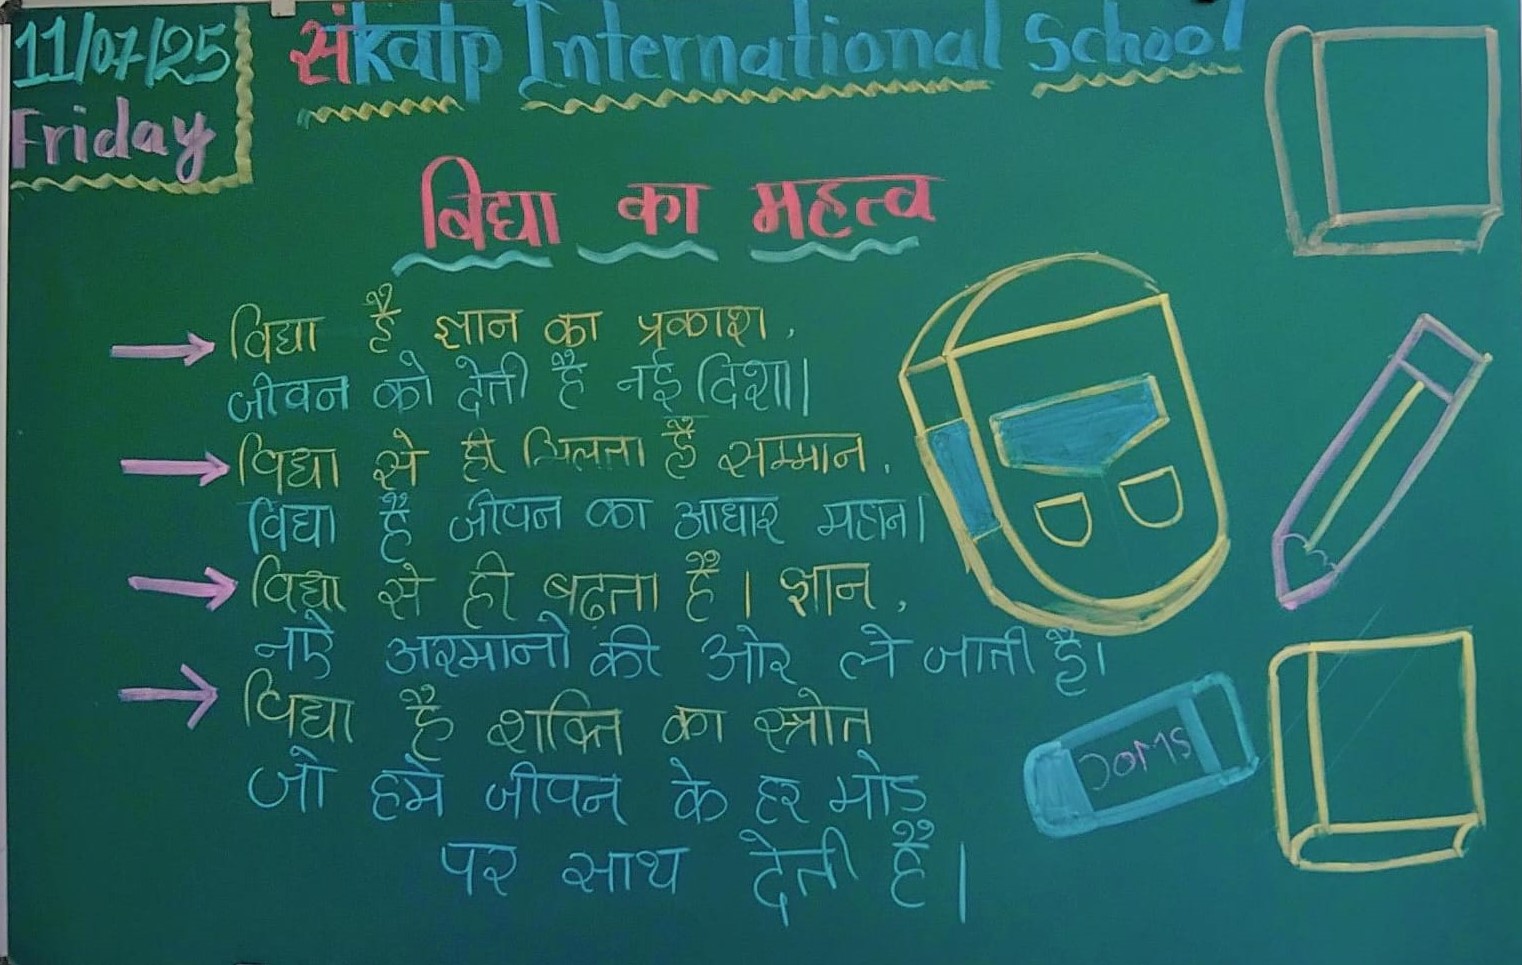 11/07/25
Friday
संkalp International School
विद्या का महत्व
विद्या है ज्ञान का प्रकाश,
जीवन को देती है नई दिशा।
विद्या से ही मिलता है सम्मान,
विद्या है जीवन का आधार महान।
विद्या से ही बढ़ता है। ज्ञान,
नऐ अरमानो की ओर ले जाती है।
विद्या है शक्ति का स्त्रोत
जो हमे जीवन के हर मोड
पर साथ देती है।
DOMS